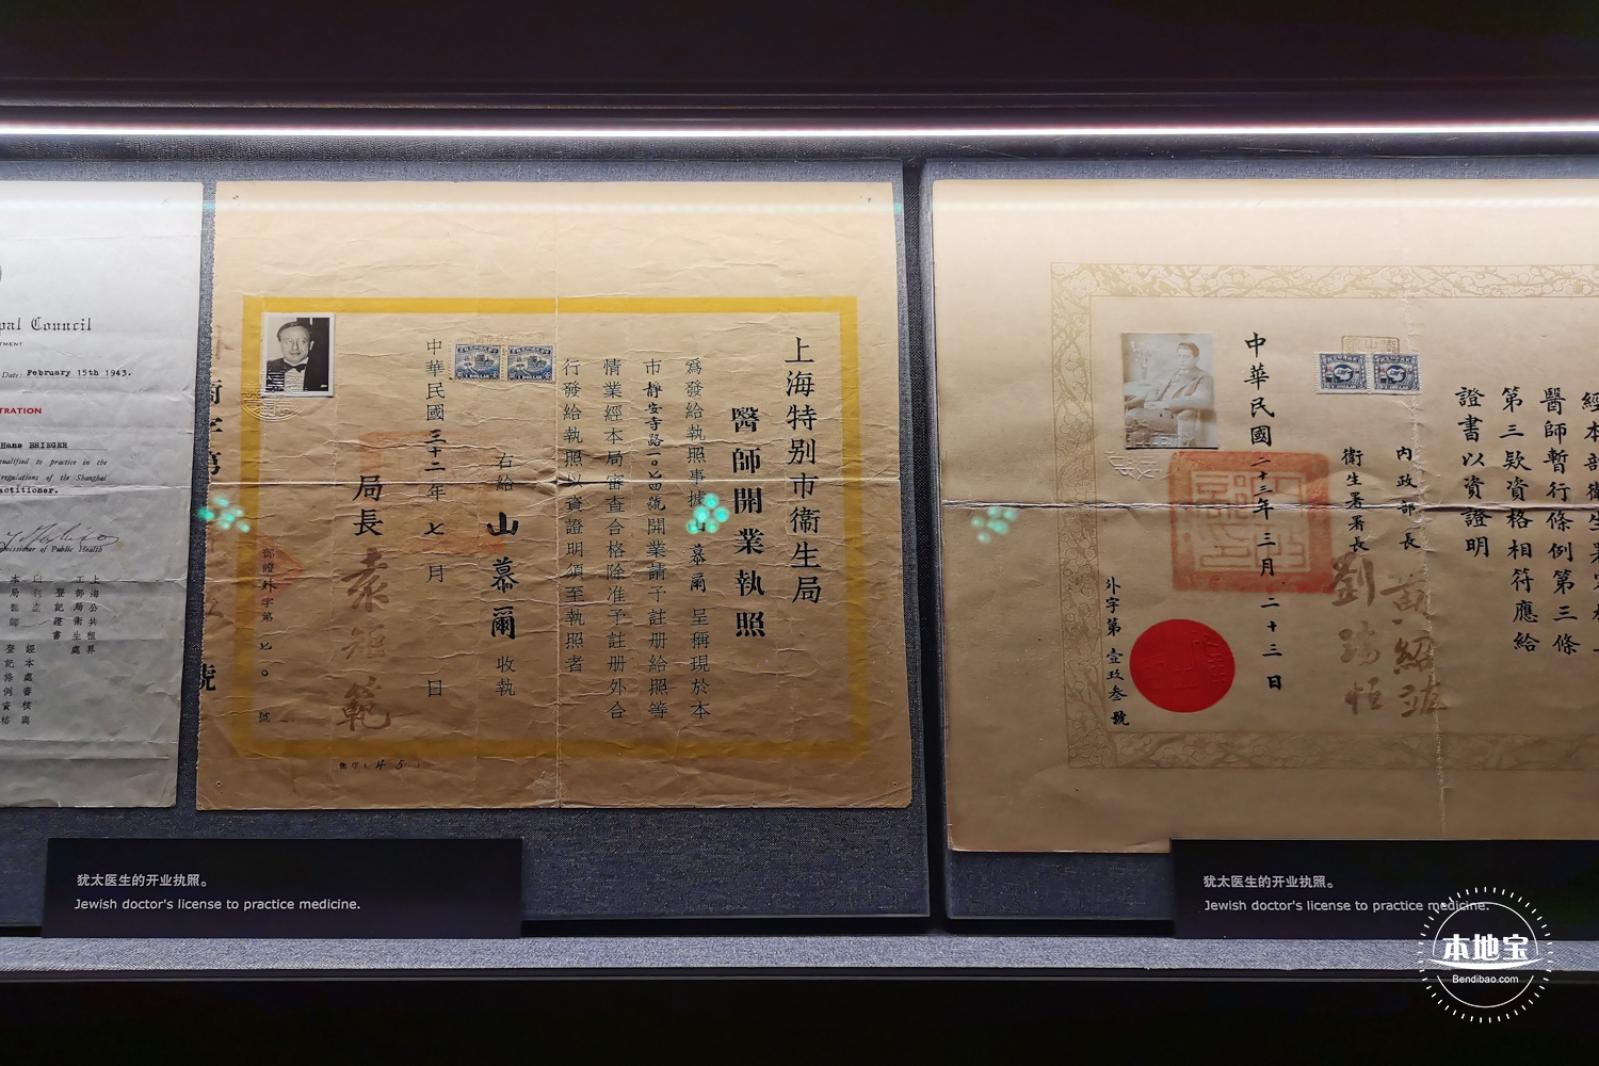 pal Council
TMENT
Date: February 15th 1943.
TRATION
Hans BRIEGER
qualified to practice in the
regulations of the Shanghai
actitioner.
Commissioner of Public Health
上海公共租界
工部局衛生處
登記證書
上海特别市衞生局
醫師開業執照
爲發給執照事據山慕爾呈稱現於本
市靜安寺路一〇七四號開業請予註册給照等
情業經本局審查合格除准予註册外合
行發給執照以資證明須至執照者
右給山慕爾收執
中華民國三十二年七月 日
局長袁矩範
衛字第
號
鄭證外字第七〇號
經本部衞生署審
醫師暫行條例第三條
第三欵資格相符應給
證書以資證明
內政部長黃紹竑
衞生署署長劉瑞恒
中華民國二十三年三月二十三日
外字第壹玖叁號
犹太医生的开业执照。
Jewish doctor's license to practice medicine.
犹太医生的开业执照。
Jewish doctor's license to practice medicine.
本地宝
Bendibao.com